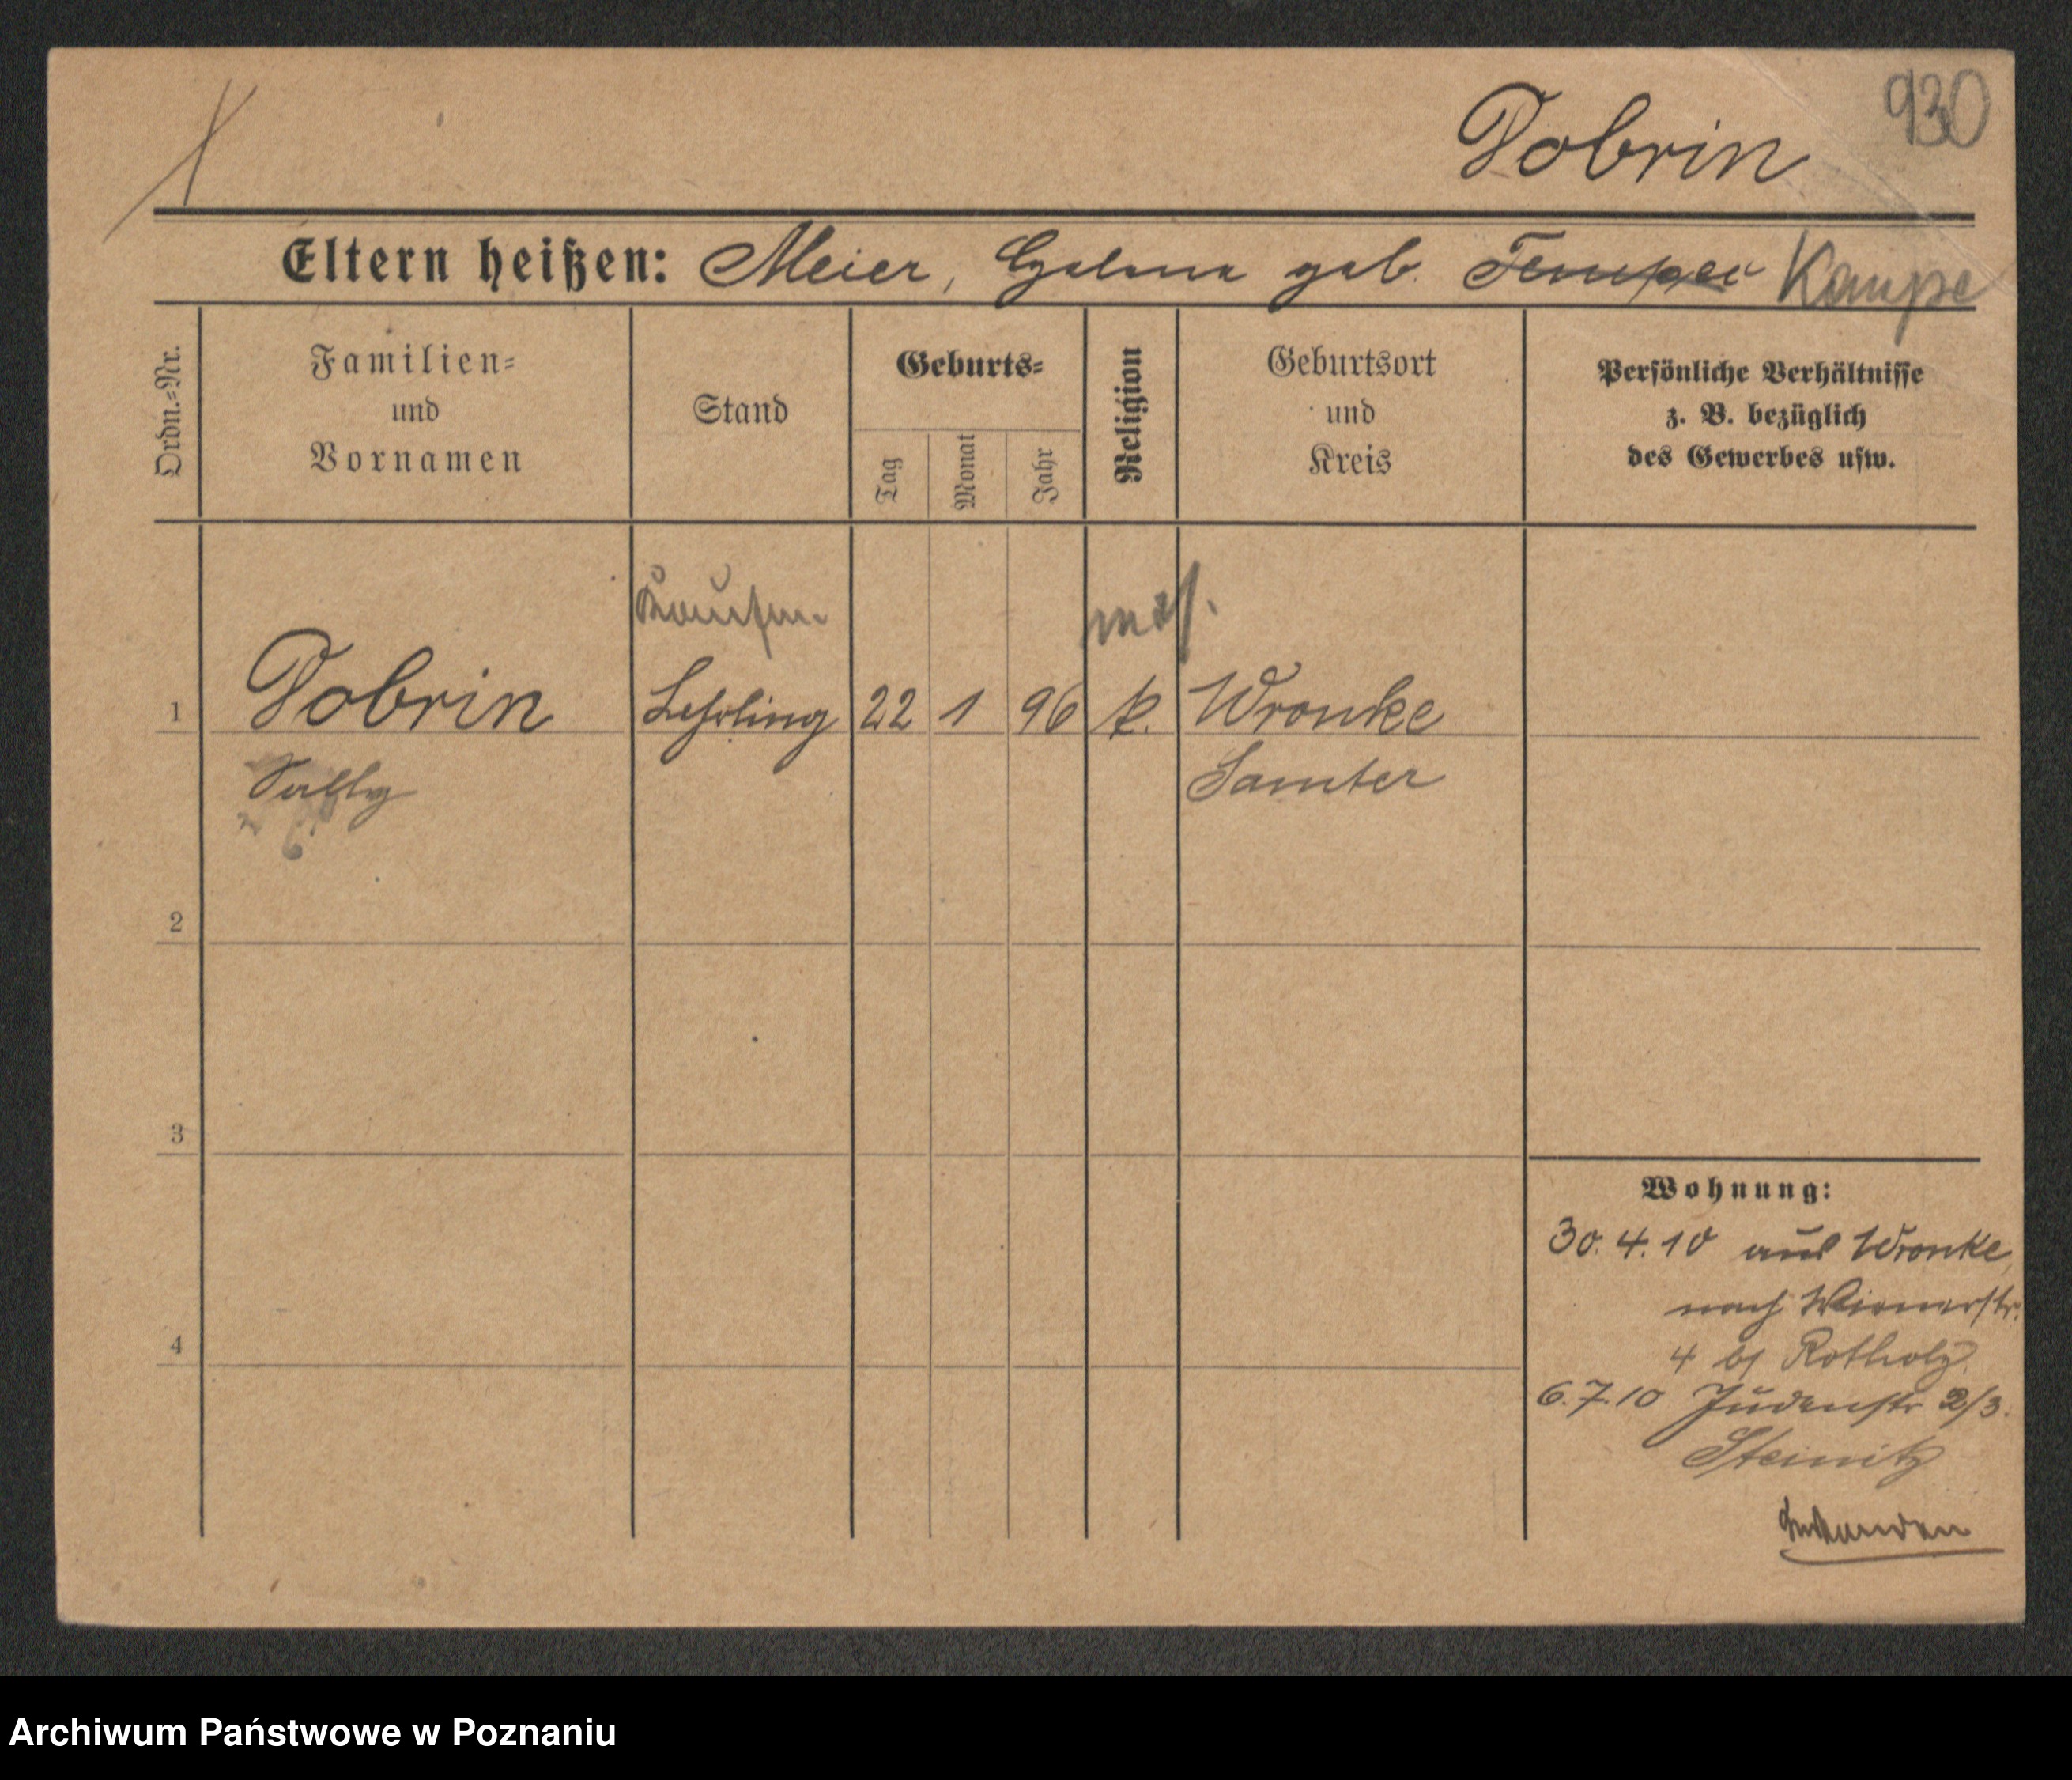 930
Dobrin
Eltern heißen: Meier, Helene geb. Kaupe
Ordn.=Nr.
Familien=
und
Vornamen
Stand
Geburts=
Tag
Monat
Jahr
Religion
Geburtsort
und
Kreis
Persönliche Verhältnisse
z. B. bezüglich
des Gewerbes usw.
Kaufm.
mos.
1
Dobrin
Lehrling
22
1
96
Wronke
Sally
Samter
2
3
4
Wohnung:
30.4.10 aus Wronke
nach Wienerstr.
4 bj Rotholz
6.7.10 Judenstr 2/3.
Steinitz
Archiwum Państwowe w Poznaniu